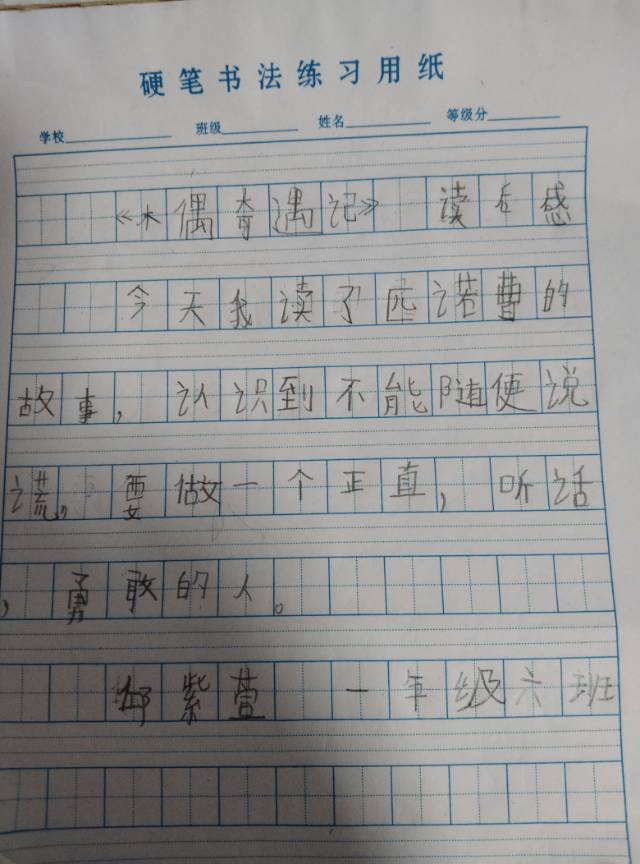 硬笔书法练习用纸
学校 班级 姓名 等级分
《木偶奇遇记》 读后感
今天我读了匹诺曹的
故事，认识到不能随便说
谎，要做一个正直，听话
，勇敢的人。
紫萱 一年级六班